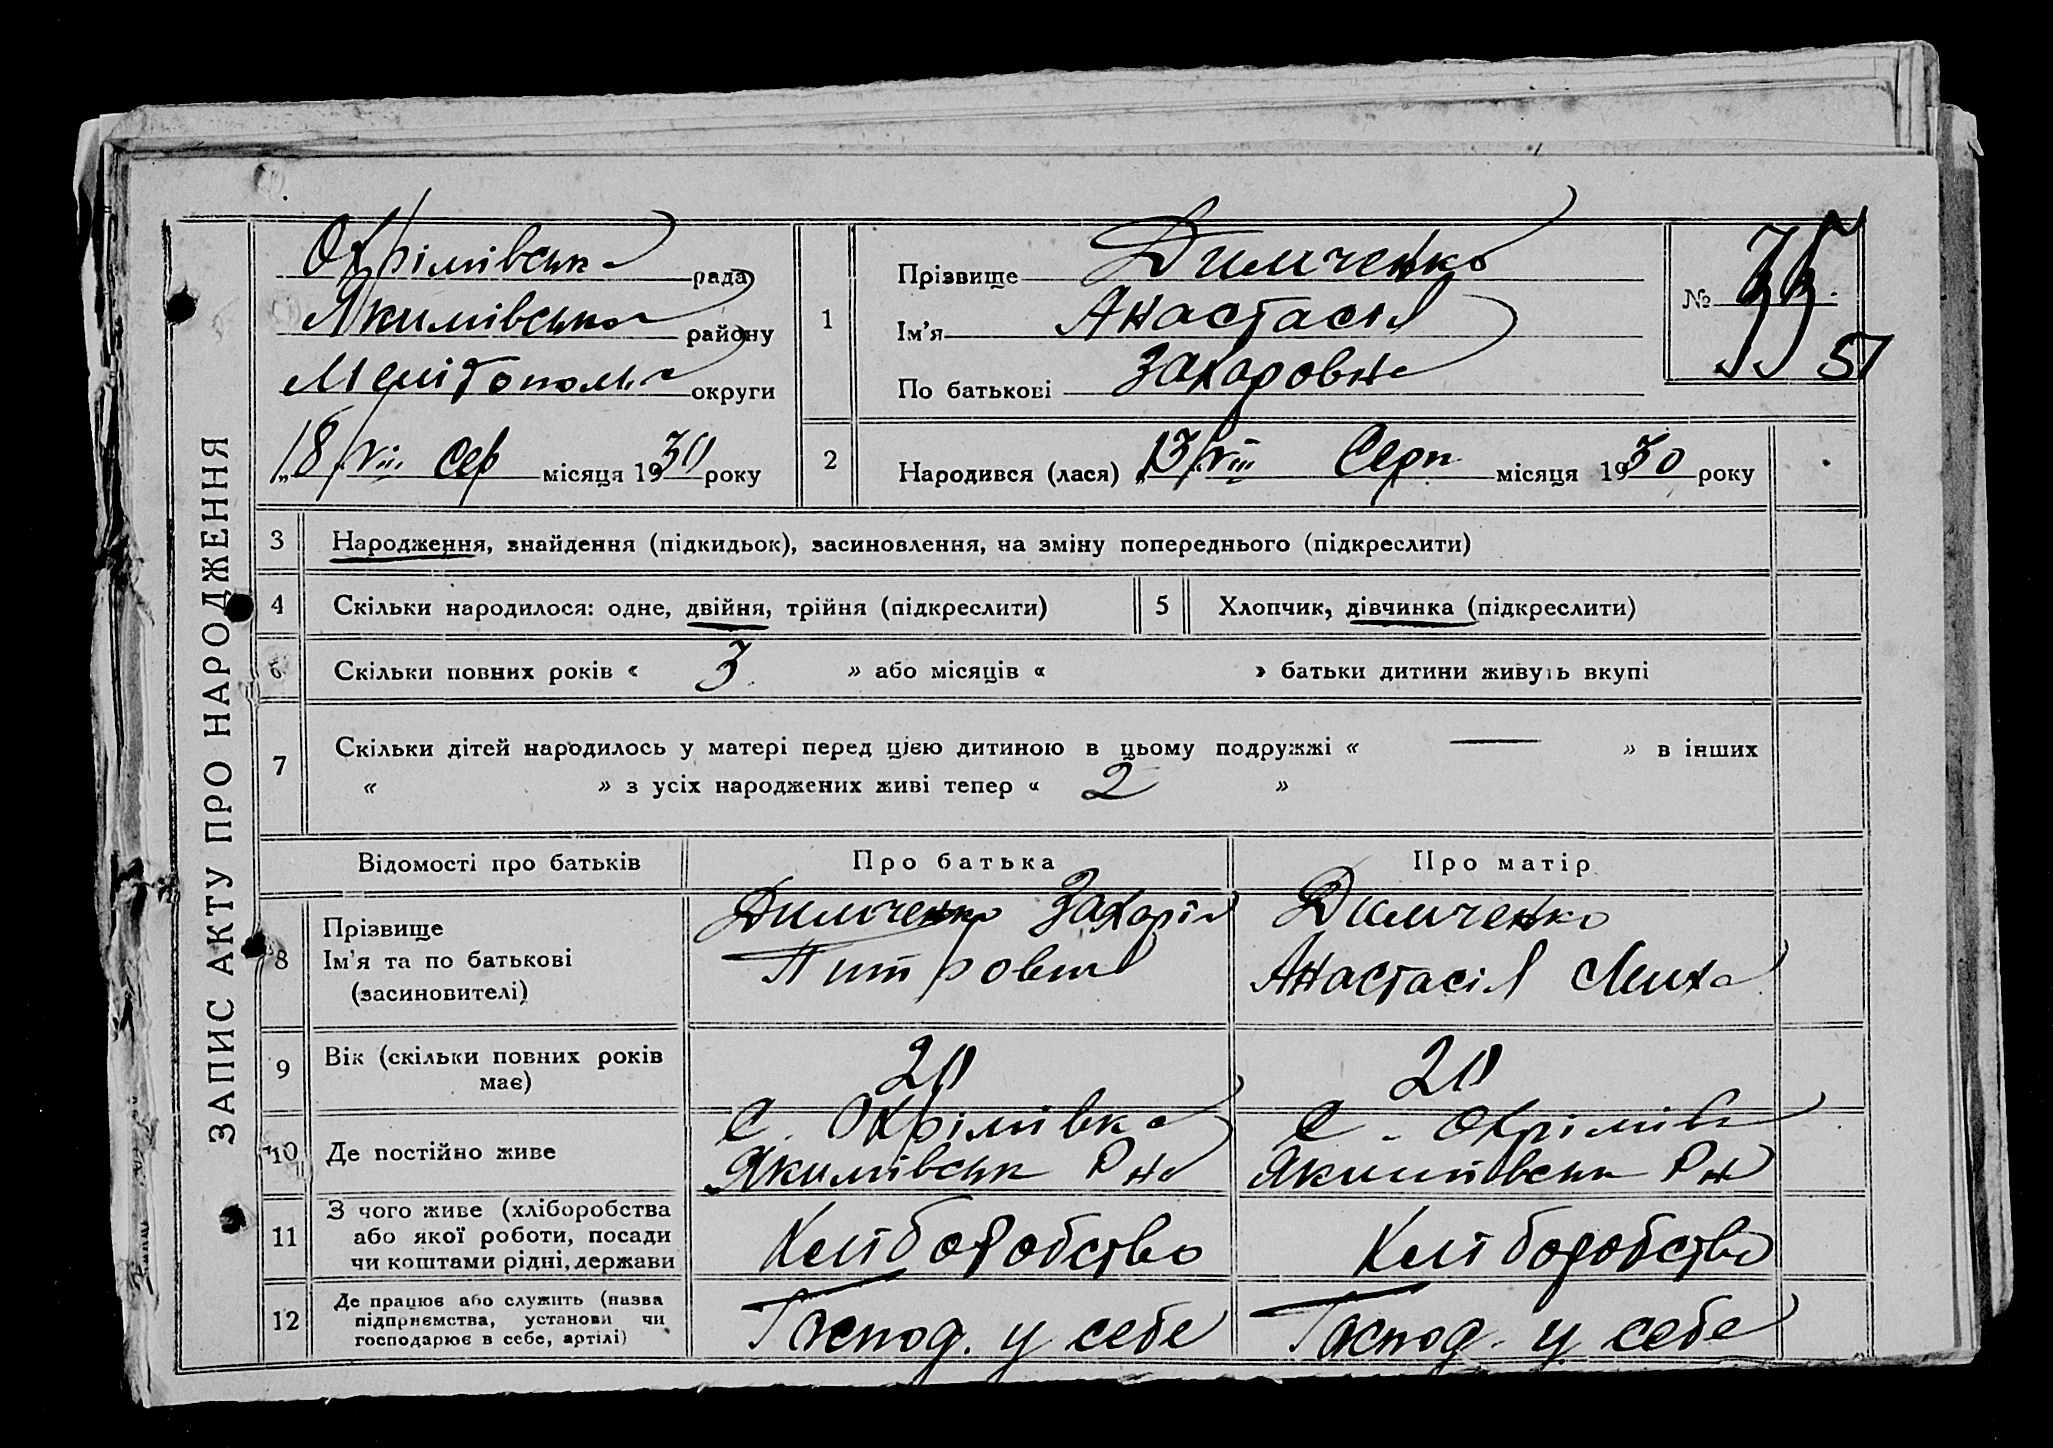 ЗАПИС АКТУ ПРО НАРОДЖЕННЯ
Охрімівська рада
Якимівського району
Мелітопольс округи
"18/VIII Сер місяця 1930 року
1
Прізвище Димченко
Ім'я Анастасія
По батькові Захаровна
№ 35
51
2
Народився (лася) "13/VIII Серп місяця 1930 року
3 Народження, знайдення (підкидьок), засиновлення, на зміну попереднього (підкреслити)
4 Скільки народилося: одне, двійня, трійня (підкреслити)
5 Хлопчик, дівчинка (підкреслити)
6 Скільки повних років « 3 » або місяців « » батьки дитини живуть вкупі
7 Скільки дітей народилось у матері перед цією дитиною в цьому подружжі « — » в інших
« » з усіх народжених живі тепер « 2 »
Відомості про батьків Про батька Про матір
8 Прізвище
Ім'я та по батькові
(засиновителі)
Димченко Захарія
Питрович
Димченко
Анастасія Миха
9 Вік (скільки повних років
має)
20
20
10 Де постійно живе
С. Охрімівка
Якимівськ Рна
С. Охрімівк
Якимівськ Рн
11 З чого живе (хліборобства
або якої роботи, посади
чи коштами рідні, держави
Хліборобство
Хліборобство
12 Де працює або служить (назва
підприємства, установи чи
господарює в себе, артілі)
Господ. у себе
Господ. у себе